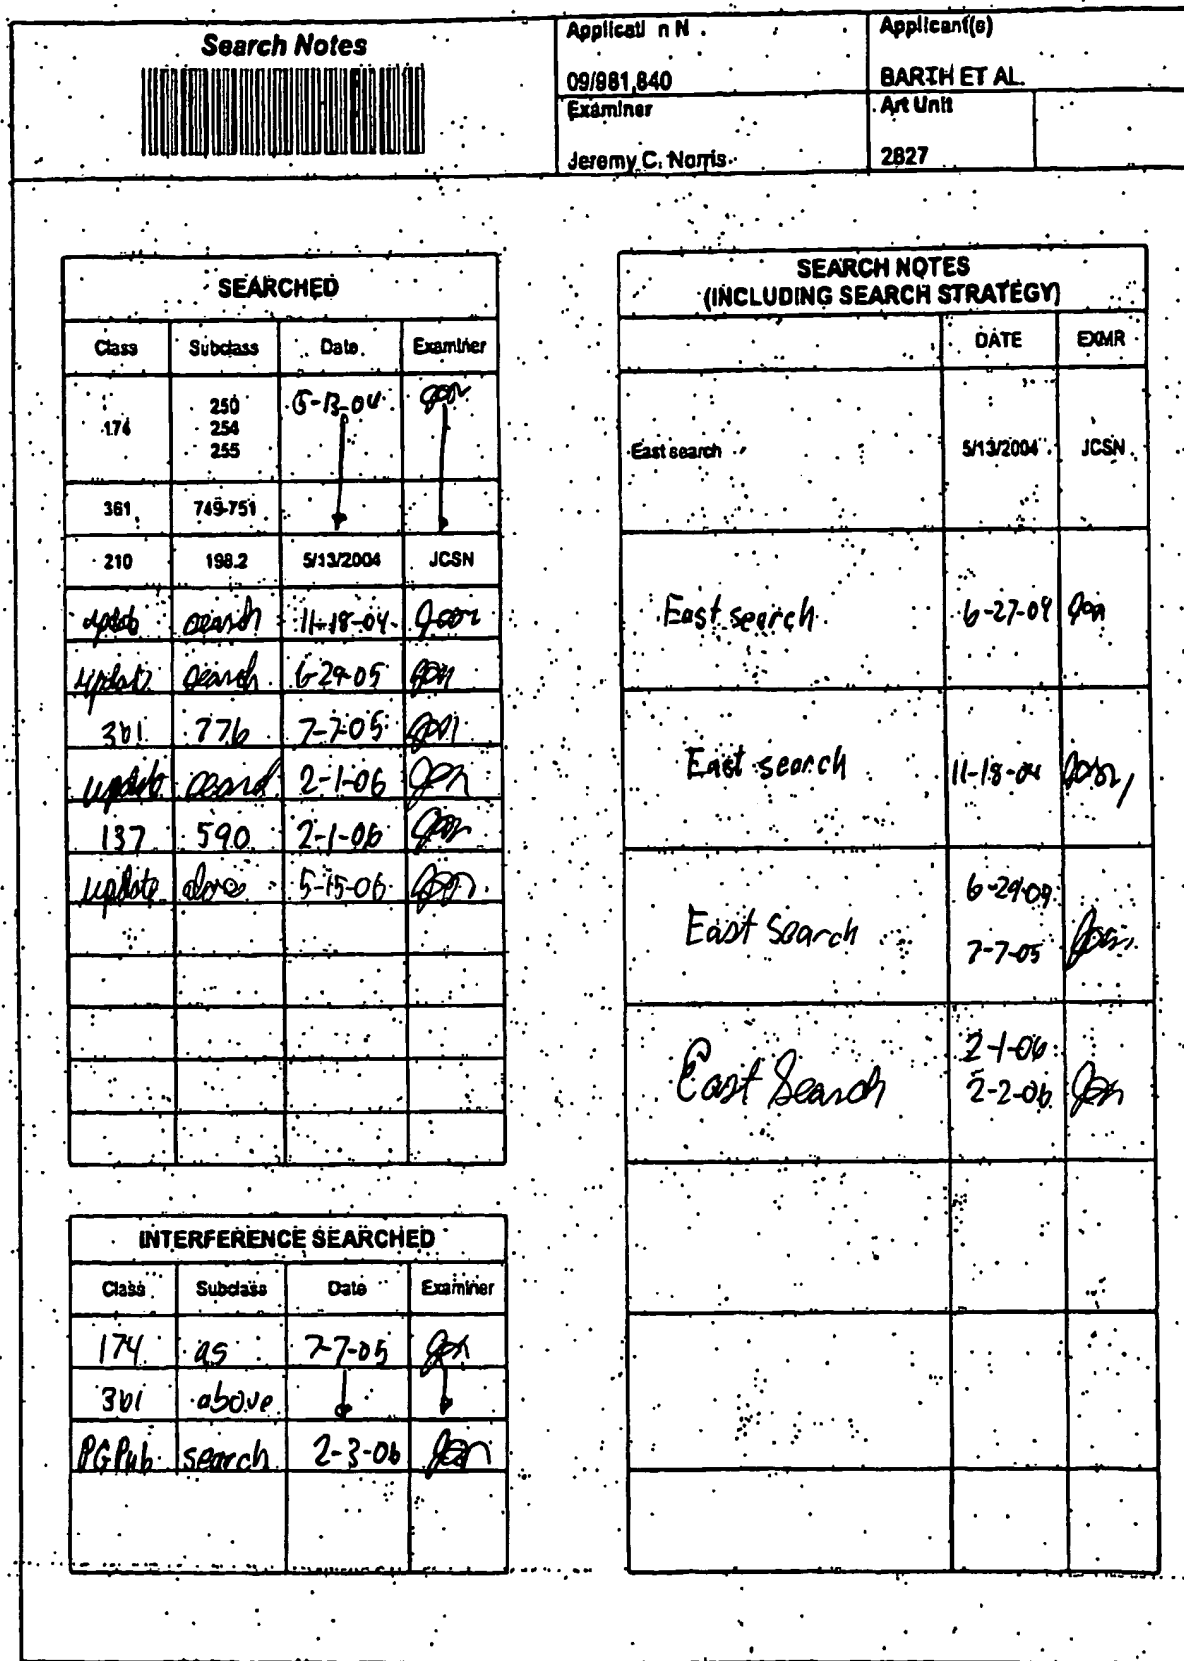 Search Notes
Applicati n N .
09/981,840
Applicant(s)
BARTH ET AL.
Examiner
Jeremy C. Norris
Art Unit
2827
SEARCHED
Class Subclass Date Examiner
174 250 5-13-04
254
255
361 749-751
210 198.2 5/13/2004 JCSN
update search 11-18-04
update search 6-29-05
361 776 7-7-05
update search 2-1-06
137 590 2-1-06
update above 5-15-06
INTERFERENCE SEARCHED
Class Subclass Date Examiner
174 as 7-7-05
361 above
PGPub search 2-3-06
SEARCH NOTES
(INCLUDING SEARCH STRATEGY)
DATE EXMR
East search 5/13/2004 JCSN
East search 6-27-04
East search 11-18-04
East Search
7-7-05
East Search 2-1-06
2-2-06